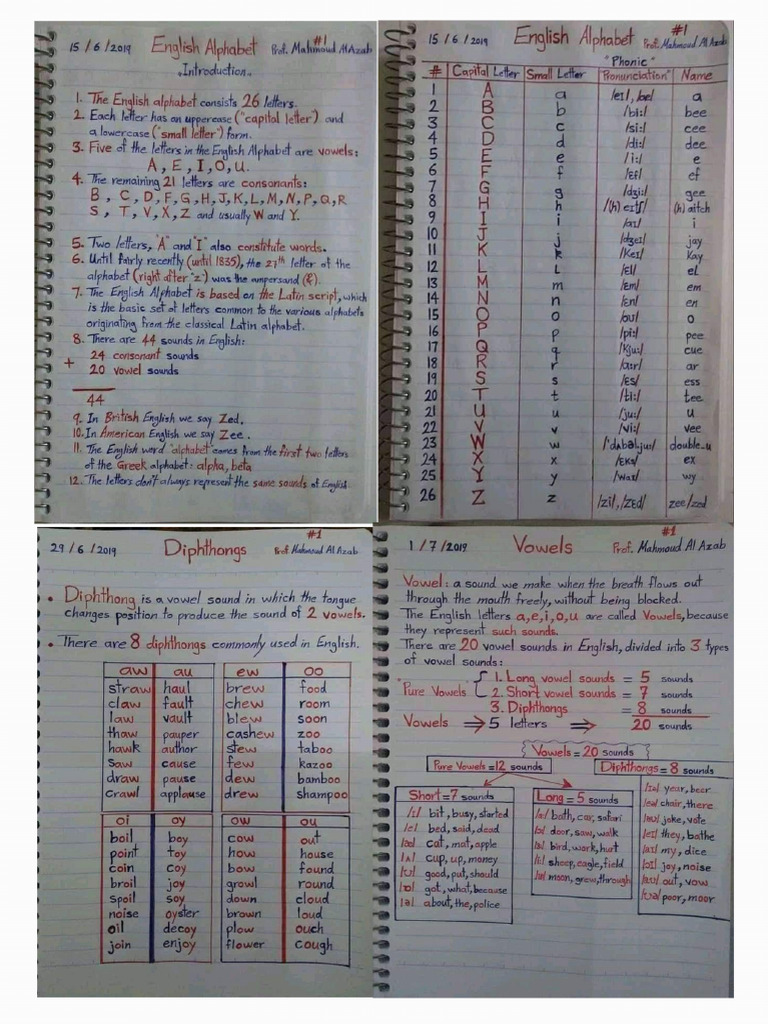 15/6/2019 English Alphabet #1 Prof. Mahmoud Al Azab
"Introduction"
1. The English alphabet consists 26 letters.
2. Each letter has an uppercase ("capital letter") and
a lowercase ("small letter") form.
3. Five of the letters in the English Alphabet are vowels:
A, E, I, O, U.
4. The remaining 21 letters are consonants:
B, C, D, F, G, H, J, K, L, M, N, P, Q, R
S, T, V, X, Z and usually W and Y.
5. Two letters, "A" and "I" also constitute words.
6. Until fairly recently (until 1835), the 27th letter of the
alphabet (right after "z") was the ampersand (&).
7. The English Alphabet is based on the Latin script, which
is the basic set of letters common to the various alphabets
originating from the classical Latin alphabet.
8. There are 44 sounds in English:
24 consonant sounds
+ 20 vowel sounds
44
9. In British English we say Zed.
10. In American English we say Zee.
11. The English word "alphabet" comes from the first two letters
of the Greek alphabet: alpha, beta
12. The letters don't always represent the same sounds of English.
15/6/2019 English Alphabet #1 Prof. Mahmoud Al Azab
"Phonic"
# Capital Letter Small Letter Pronunciation Name
1 A a /eɪ/, /æ/ a
2 B b /bi:/ bee
3 C c /si:/ cee
4 D d /di:/ dee
5 E e /i:/ e
6 F f /ɛf/ ef
7 G g /dʒi:/ gee
8 H h /(h)eɪtʃ/ (h)aitch
9 I i /aɪ/ i
10 J j /dʒeɪ/ jay
11 K k /keɪ/ kay
12 L L /ɛl/ el
13 M m /ɛm/ em
14 N n /ɛn/ en
15 O o /oʊ/ o
16 P p /pi:/ pee
17 Q q /kju:/ cue
18 R r /ɑ:r/ ar
19 S s /ɛs/ ess
20 T t /ti:/ tee
21 U u /ju:/ u
22 V v /vi:/ vee
23 W w /ˈdʌbəl.ju:/ double_u
24 X x /ɛks/ ex
25 Y y /waɪ/ wy
26 Z z /zi/, /zɛd/ zee/zed
29/6/2019 Diphthongs #1 Prof. Mahmoud Al Azab
• Diphthong is a vowel sound in which the tongue
changes position to produce the sound of 2 vowels.
• There are 8 diphthongs commonly used in English.
aw au ew oo
straw haul brew food
claw fault chew room
law vault blew soon
thaw pauper cashew zoo
hawk author stew taboo
saw cause few kazoo
draw pause dew bamboo
crawl applause drew shampoo
oi oy ow ou
boil boy cow out
point toy how house
coin coy bow found
broil joy growl round
spoil soy down cloud
noise oyster brown loud
oil decoy plow ouch
join enjoy flower cough
1/7/2019 Vowels #1 Prof. Mahmoud Al Azab
Vowel: a sound we make when the breath flows out
through the mouth freely, without being blocked.
The English letters a,e,i,o,u are called Vowels, because
they represent such sounds.
There are 20 vowel sounds in English, divided into 3 types
of vowel sounds:
1. Long vowel sounds = 5 sounds
Pure Vowels 2. Short vowel sounds = 7 sounds
3. Diphthongs = 8 sounds
Vowels ⇒ 5 letters ⇒ 20 sounds
Vowels = 20 sounds
Pure Vowels = 12 sounds Diphthongs = 8 sounds
Short = 7 sounds
/ɪ/ bit, busy, started
/e/ bed, said, dead
/æ/ cat, mat, apple
/ʌ/ cup, up, money
/ʊ/ good, put, should
/ɒ/ got, what, because
/ə/ about, the, police
Long = 5 sounds
/ɑ:/ bath, car, safari
/ɔ:/ door, saw, walk
/ɜ:/ bird, work, hurt
/i:/ sheep, eagle, field
/u:/ moon, grew, through
/ɪə/ year, beer
/eə/ chair, there
/əʊ/ joke, vote
/eɪ/ they, bathe
/aɪ/ my, dice
/ɔɪ/ joy, noise
/aʊ/ out, vow
/ʊə/ poor, moor